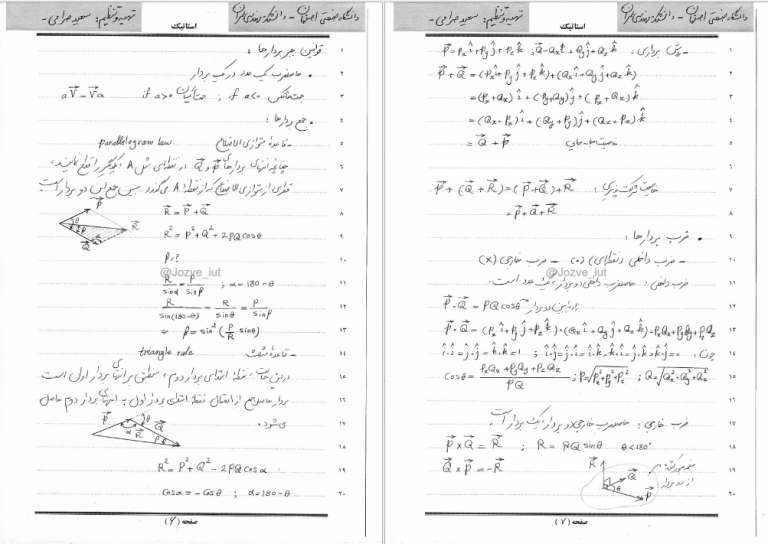 تهیه و تنظیم: سعید صرامی - دانشگاه صنعتی اصفهان - دانشکده مهندسی عمران
استاتیک
۱ قوانین جبر بردارها:
۲ • حاصلضرب یک عدد در یک بردار
۳ aV⃗ - V⃗a if a>0 ; if a<0
۴ • جمع بردارها:
۵ - قاعدهٔ متوازی الاضلاع parallelogram law
۶ چنانچه انتهای بردارهای P⃗ و Q⃗ در نقطه‌ای مثل A یکدیگر را قطع نمایند،
۷ قطری از متوازی الاضلاع که از نقطهٔ A می‌گذرد مبین جمع این دو بردار است
P⃗
θ
β
R⃗
Q⃗
۸ R⃗ = P⃗ + Q⃗
۹ R² = P² + Q² + 2PQ cosθ
۱۰ β = ?
@Jozve_iut
۱۱ R/sinα = P/sinβ ; α = 180 - θ
۱۲ R/sin(180-θ) = R/sinθ = P/sinβ
۱۳ β = sin⁻¹(P/R sinθ)
۱۴ - قاعدهٔ مثلث triangle rule
۱۵ در این حالت، نقطهٔ ابتدای بردار دوم، منطبق بر انتهای بردار اول است
۱۶ بردار حاصل جمع از اتصال نقطهٔ ابتدای بردار اول به انتهای بردار دوم حاصل
۱۷ می‌شود.
P⃗
θ
Q⃗
α
R⃗
β
۱۸
۱۹ R² = P² + Q² - 2PQ cosα
۲۰ cosα = -cosθ ; α = 180 - θ
صفحه (۶)
تهیه و تنظیم: سعید صرامی - دانشگاه صنعتی اصفهان - دانشکده مهندسی عمران
استاتیک
۱ - روش برداری: P⃗ = Pxî + Pyĵ + Pzk̂ ; Q⃗ = Qxî + Qyĵ + Qzk̂
۲ P⃗ + Q⃗ = (Pxî + Pyĵ + Pzk̂) + (Qxî + Qyĵ + Qzk̂)
۳ = (Px + Qx)î + (Py + Qy)ĵ + (Pz + Qz)k̂
۴ = (Qx + Px)î + (Qy + Py)ĵ + (Qz + Pz)k̂
۵ = Q⃗ + P⃗ خاصیت جابه‌جایی
۶
۷ خاصیت شرکت پذیری: P⃗ + (Q⃗ + R⃗) = (P⃗ + Q⃗) + R⃗
۸ = P⃗ + Q⃗ + R⃗
۹ • ضرب بردارها:
۱۰ - ضرب داخلی (نقطه‌ای) (•) - ضرب خارجی (×)
@Jozve_iut
۱۱ ضرب داخلی: حاصلضرب داخلی دو بردار، یک عدد است.
۱۲ P⃗ . Q⃗ = PQ cosθ زاویه بین دو بردار
۱۳ P⃗ . Q⃗ = (Pxî + Pyĵ + Pzk̂) . (Qxî + Qyĵ + Qzk̂) = PxQx + PyQy + PzQz
۱۴ چون: î.î = ĵ.ĵ = k̂.k̂ = 1 ; î.ĵ = ĵ.î = î.k̂ = k̂.î = ĵ.k̂ = k̂.ĵ = 0
۱۵ cosθ = (PxQx + PyQy + PzQz)/PQ ; P = √(Px² + Py² + Pz²) ; Q = √(Qx² + Qy² + Qz²)
۱۶
۱۷ ضرب خارجی: حاصلضرب خارجی دو بردار، یک بردار است
۱۸ P⃗ × Q⃗ = R⃗ ; R = PQ sinθ θ < 180°
۱۹ Q⃗ × P⃗ = -R⃗
R⃗
Q⃗
θ
P⃗
۲۰ از دو بردار
صفحه (۷)